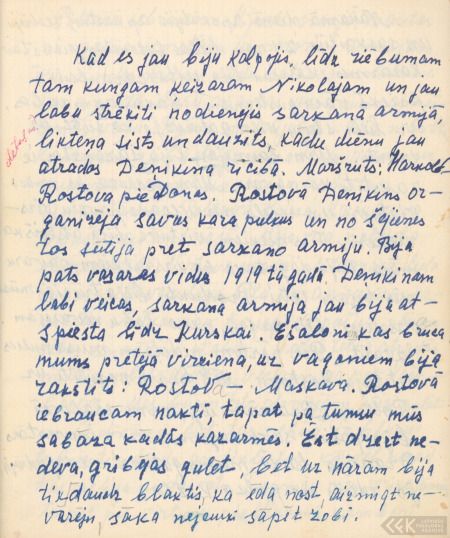 Kad es jau biju kalpojis, līdz riebumam
tam kungam ķeizaram Nikolajam un jau
labu strēķīti nodienējis sarkanā armijā,
likteņa sists un dauzīts, kādu dienu jau
atrados Deņikina rīcībā. Maršruts: Harkova-
Rostova pie Donas. Rostovā Deņikins or-
ganizēja savus kara pulkus un no šejienes
tos sūtīja pret sarkano armiju. Bija
pats vasaras vidus 1919tā gadā Deņikinam
labi veicas, sarkanā armija jau bija at-
spiesta līdz Kurskai. Ešaloni kas brauca
mums pretējā virzienā, uz vagoniem bija
rakstīts: Rostova - Maskava. Rostovā
iebraucām naktī, tāpat pa tumsu mūs
sabāza kādās kazarmēs. Ēst dzert ne-
deva, gribējās gulēt, bet uz nārām bija
tik daudz blaktis, ka ēda nost, aizmigt ne-
varēju, sāka nejauki sāpēt zobi.